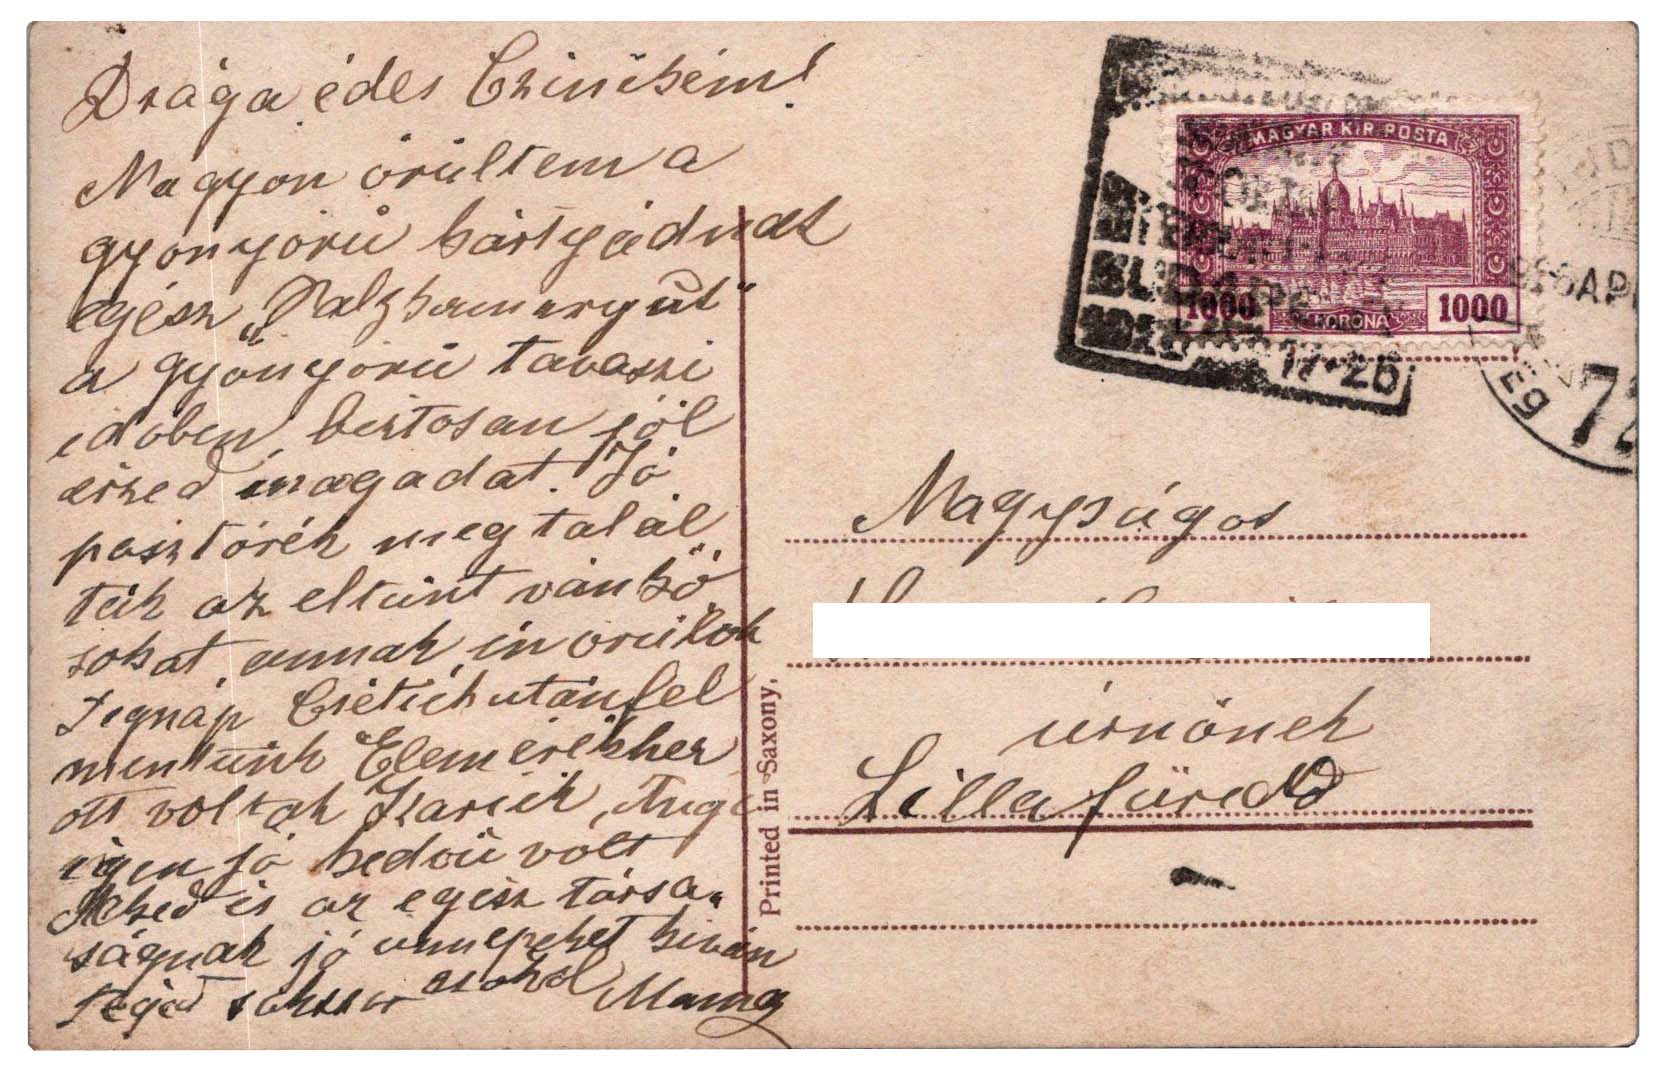 Drága édes Czinikém!
Nagyon örültem a
gyönyörü kártyádnak
egész „Salzkamergut"
a gyönyörü tavaszi
időben biztosan jól
érzed magadat. Jó
pásztorék megtalál
ták az eltünt vánkö
sokat annak én örülök
Tegnáp utánfel
mentünk Elemérékhez
ott voltak Karicik, Angi
igen jó kedvü volt
Neked is az egész társa„
ságnak jó ünnepeket kiván
téged sokszor csokol Mama
MAGYAR KIR. POSTA
1000 KORONA 1000
17·25
926 AP
72
Printed in Saxony.
Nagyságos
úrnőnek
Lillafüred